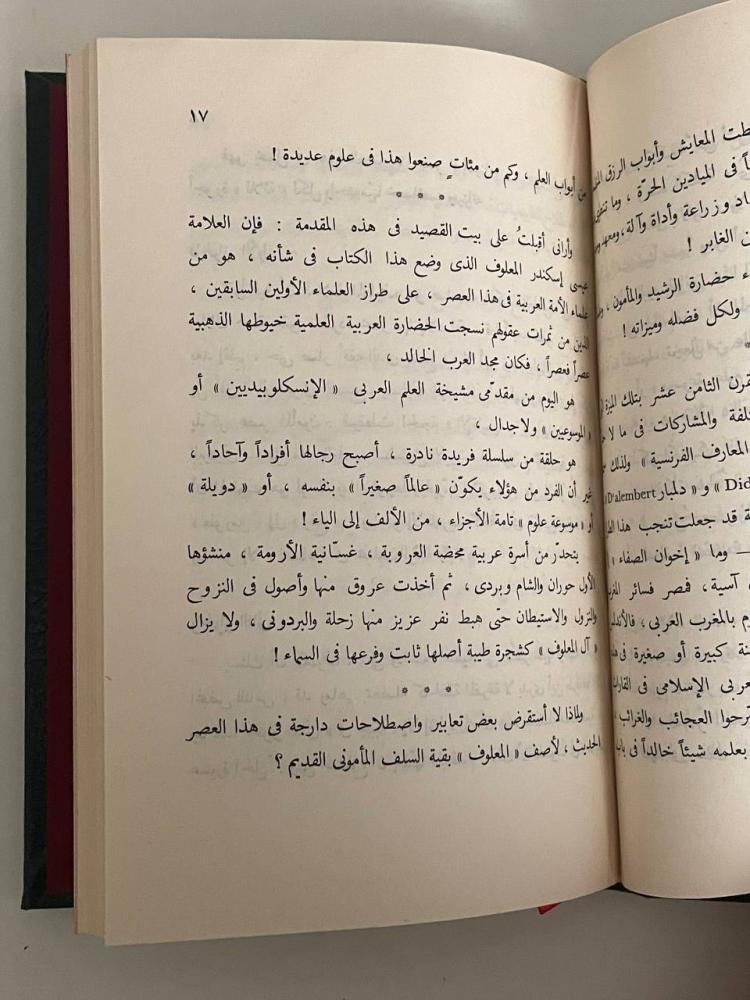 المعايش وأبواب الرزق
فى الميادين الحرّة ، وما
وزراعة وأداة وآلة ،
الغابر !
حضارة الرشيد والمأمون ،
ولكل فضله وميزاته !
القرن الثامن عشر بتلك
والمشاركات فى ما لا
المعارف الفرنسية » ولذلك
« و » دلمبار D'alembert
قد جعلت تنجب هذا
— وما « إخوان الصفاء »
آسية ، فمصر فسائر
بالمغرب العربى ،
كبيرة أو صغيرة فى
العربى الإسلامى فى القارات
العجائب والغرائب ،
بعلمه شيئاً خالداً فى
١٧
من أبواب العلم ، وكم من مئاتٍ صنعوا هذا فى علوم عديدة !
* * *
وأرانى أقبلتُ على بيت القصيد فى هذه المقدمة : فإن العلامة
عيسى إسكندر المعلوف الذى وضع هذا الكتاب فى شأنه ، هو من
علماء الأمة العربية فى هذا العصر ، على طراز العلماء الأولين السابقين ،
الذين من ثمرات عقولهم نسجت الحضارة العربية العلمية خيوطها الذهبية
عصراً فعصراً ، فكان مجد العرب الخالد ،
هو اليوم من مقدّمى مشيخة العلم العربى « الإنسكلوبيديين » أو
« الموسوعيين » ولا جدال ،
هو حلقة من سلسلة فريدة نادرة ، أصبح رجالها أفراداً وآحاداً ،
غير أن الفرد من هؤلاء يكوّن « عالماً صغيراً » بنفسه ، أو « دويلة »
أو « موسوعة علوم » تامة الأجزاء ، من الألف إلى الياء !
يتحدّر من أسرة عربية محضة العروبة ، غسّانية الأرومة ، منشؤها
الأول حوران والشام وبردى ، ثم أخذت عروق منها وأصول فى النزوح
والنزول والاستيطان حتّى هبط نفر عزيز منها زحلة والبردونى ، ولا يزال
« آل المعلوف » كشجرة طيبة أصلها ثابت وفرعها فى السماء !
* * *
ولماذا لا أستقرض بعض تعابير واصطلاحات دارجة فى هذا العصر
الحديث ، لأصف « المعلوف » بقية السلف المأمونى القديم ؟